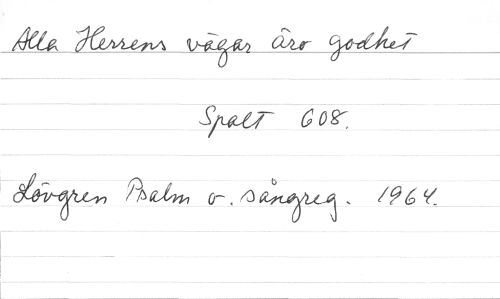 Alla Herrens vägar äro godhet
Spalt 608.
Lövgren Psalm o. sångreg. 1964.